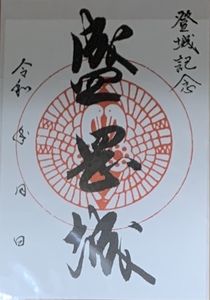 登城記念
盛岡城
令和 年 月 日